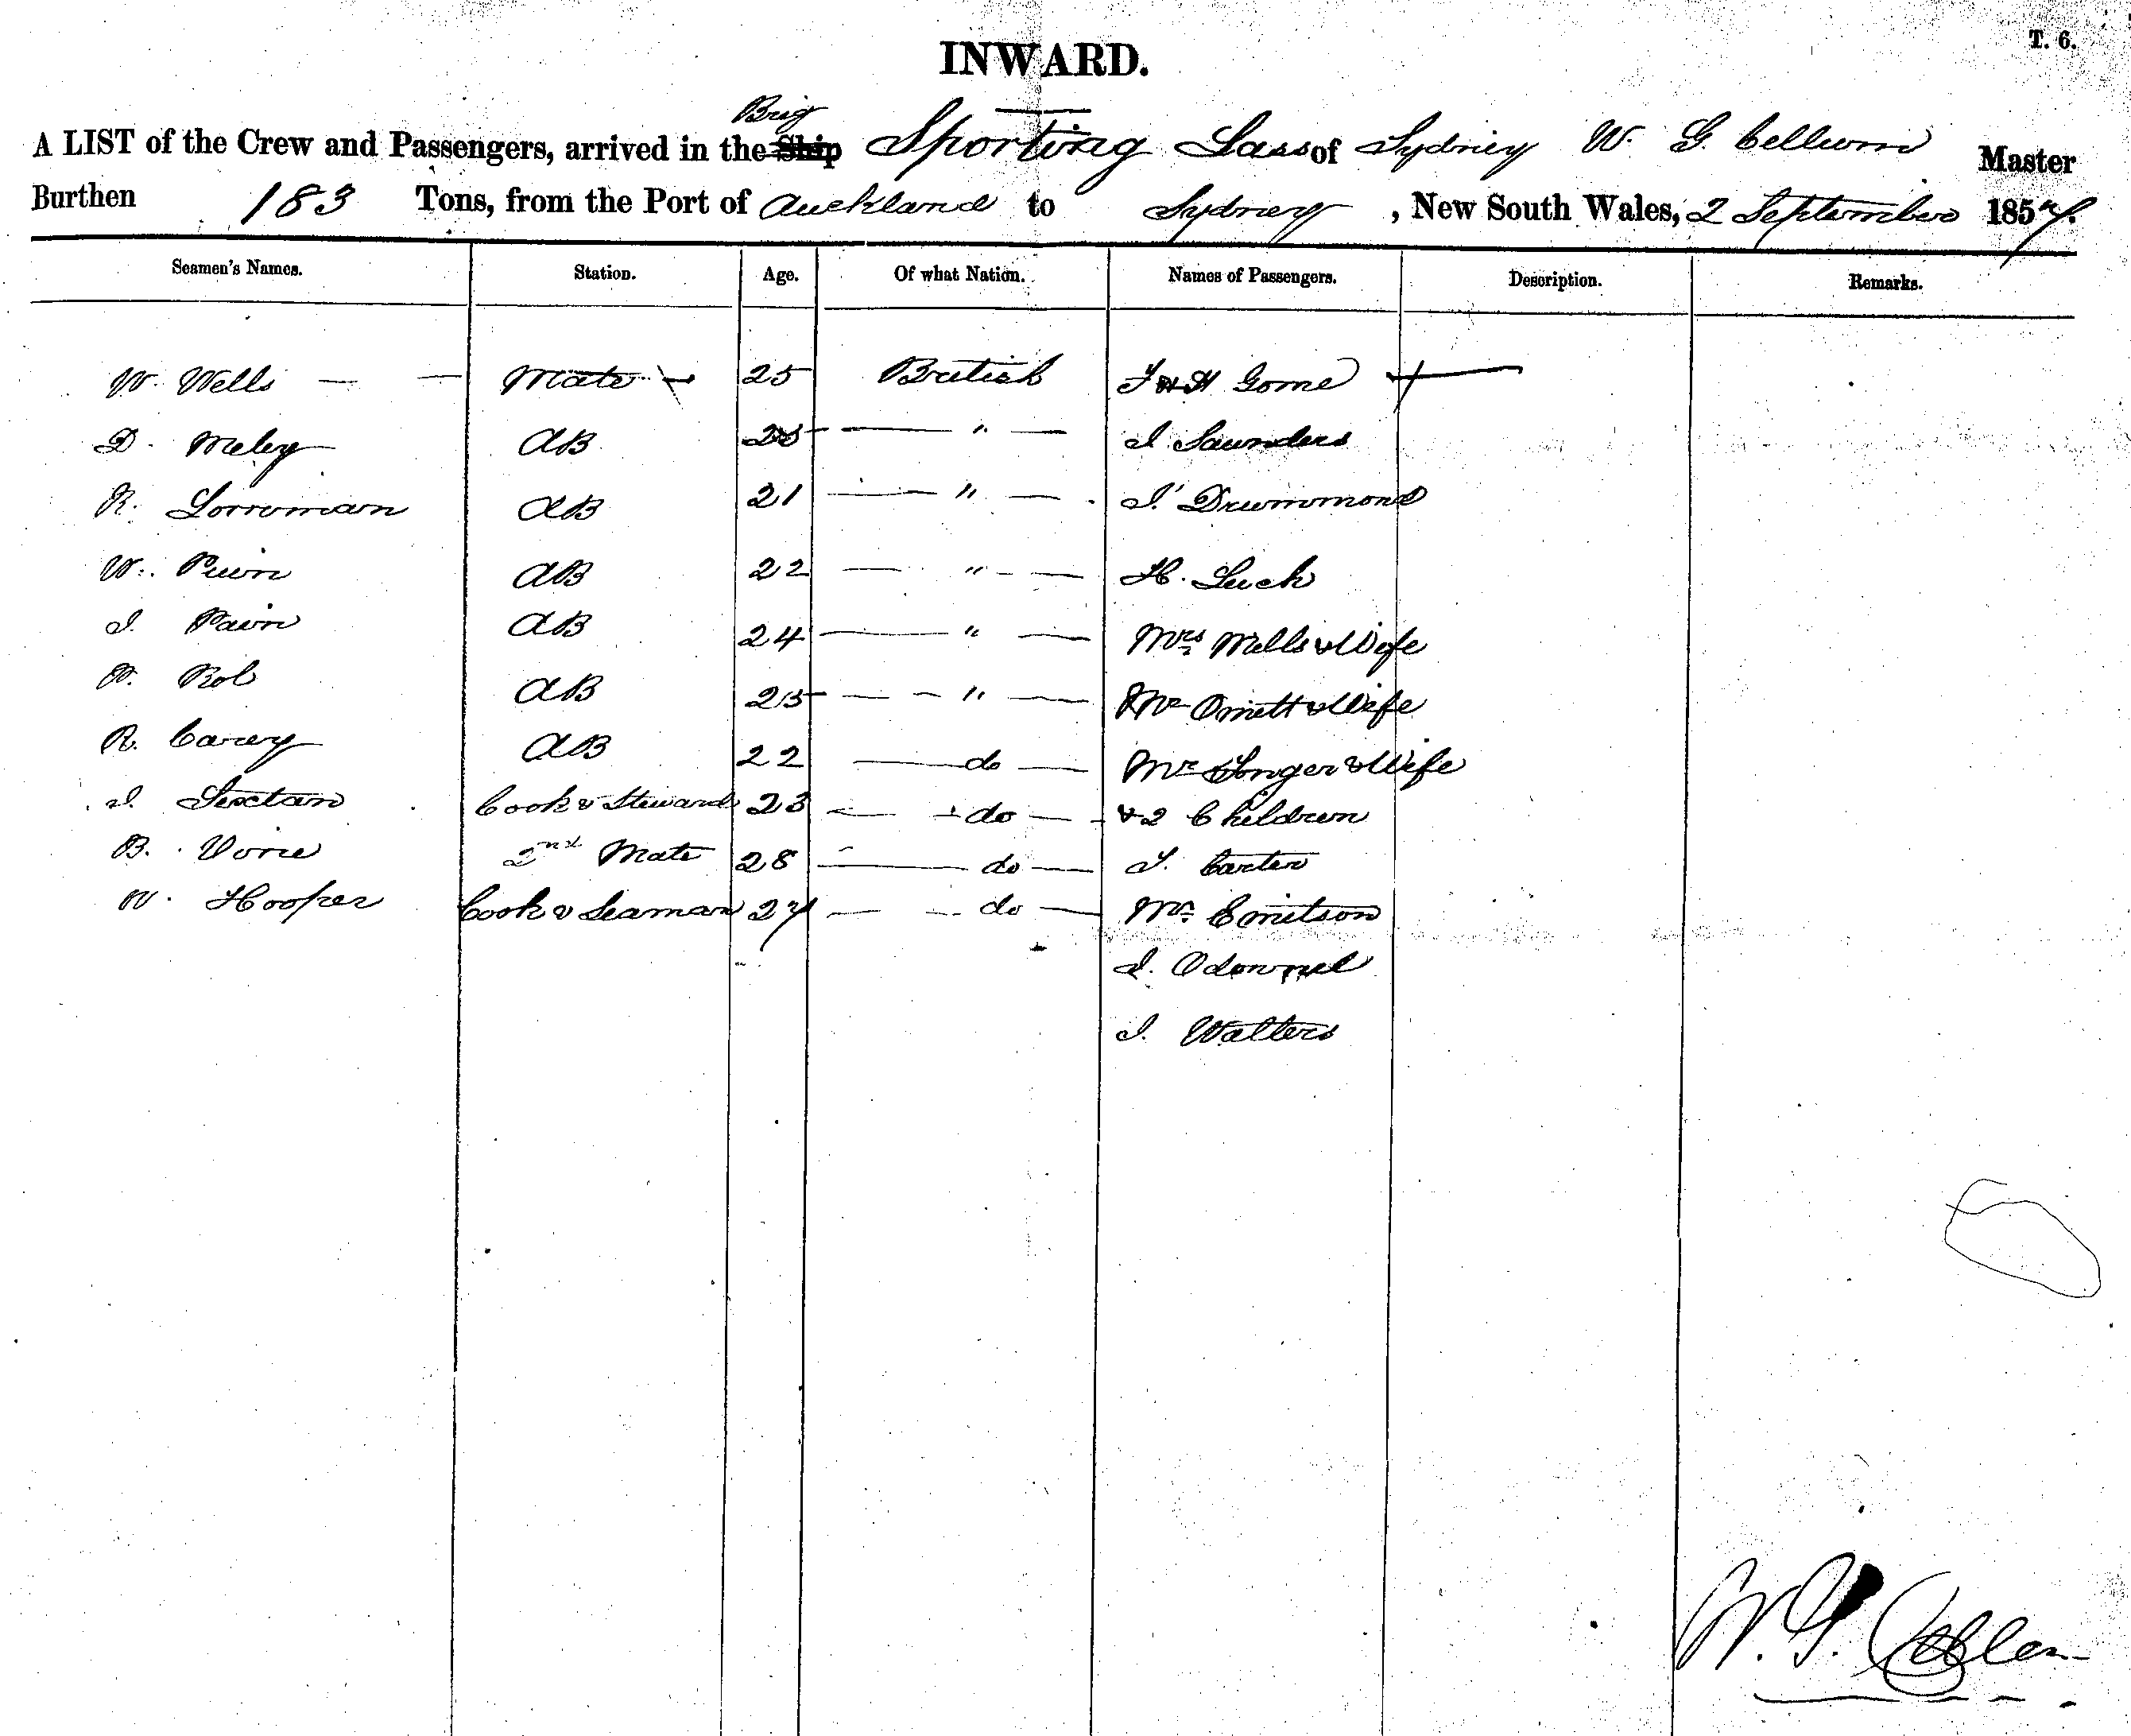 T. 6.
INWARD.
Brig
A LIST of the Crew and Passengers, arrived in the Ship Sporting Lass of Sydney W. G. Cellum Master
Burthen 183 Tons, from the Port of Auckland to Sydney, New South Wales, 2 September 1857.
Seamen's Names. Station. Age. Of what Nation. Names of Passengers. Description. Remarks.
W. Wells — — Mate 25 British Gome
D. AB — " — J Saunders
R. AB 21 — " — J. Drummond
W. AB 22 — " — H. Luch
J. Pawn AB 24 — " — Mrs Mills & Wife
W. Rob AB 25 — — " — Mr & Wife
R. Carey AB 22 — do — Mr & Wife
J. Sextan Cook & Steward 23 — do — & 2 Children
B. 2nd Mate 28 — do — J. Carter
W. Hooper Cook & Seaman 27 — do — Emitson
J. Odonnel
J. Walters
W. G.